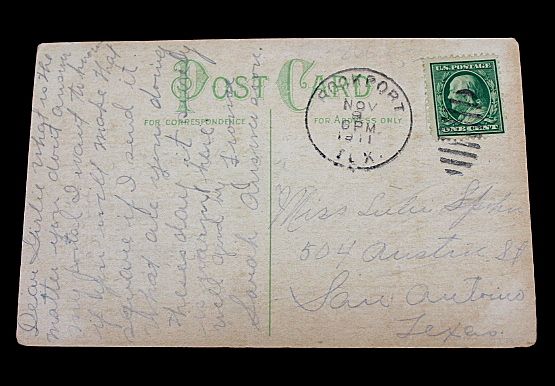 POST CARD
FOR CORRESPONDENCE
FOR ADDRESS ONLY
ROCKPORT
NOV
6 PM
1911
TEX.
U.S. POSTAGE
ONE CENT
Dear Girlie what is the
matter you don't answer
my postal I want to know
if you will make that
square if I send it
What are you doing
theses days it
is here
well good by From
Sarah
Miss
504 Austin St
San Antonio
Texas.